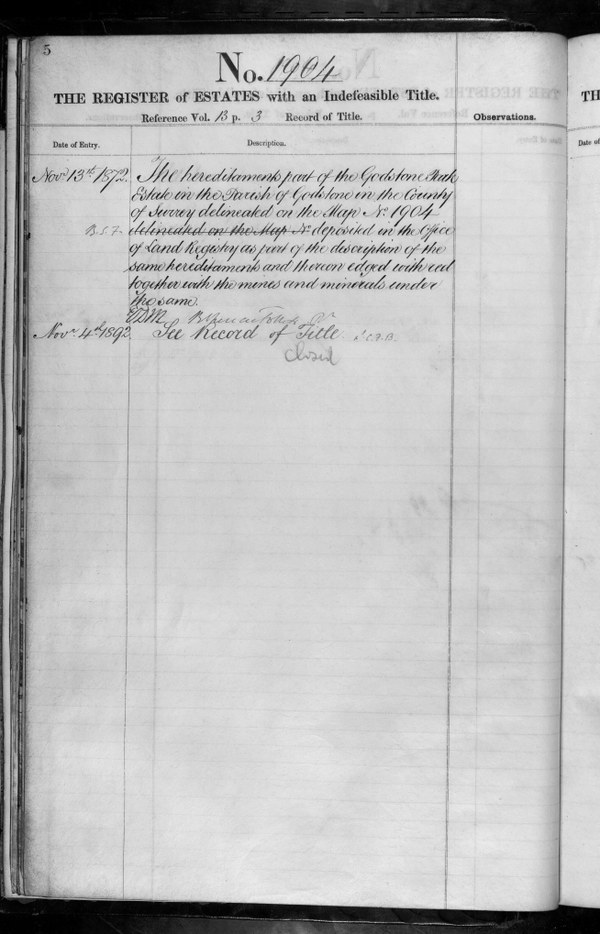 5
No. 1904
THE REGISTER of ESTATES with an Indefeasible Title.
Reference Vol. 13 p. 3 Record of Title.
Observations.
TH
Date of Entry.
Description.
Date of
Novr 13th 1872. The hereditaments part of the Godstone Park
Estate in the Parish of Godstone in the County
of Surrey delineated on the Map No. 1904
delineated on the Map No deposited in the Office
of Land Registry as part of the description of the
same hereditaments and thereon edged with red
together with the mines and minerals under
the same.
Novr 4th 1892. See Record of Title
Closed